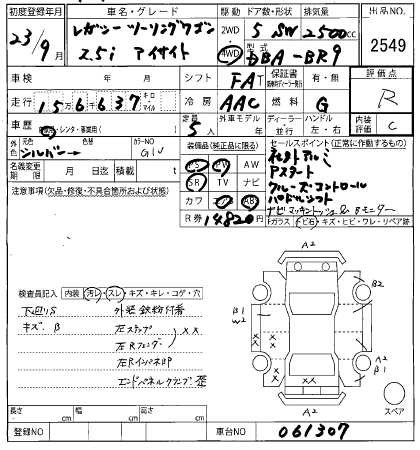 初度登録年月 車名・グレード 駆動 ドア数・形状 排気量 出品NO.
23/9月 レガシー ツーリングワゴン 2WD 5 SW 2500cc 2549
2.5i アイサイト 4WD 型式 DBA-BR9
車検 年 月 シフト FAT 保証書 有・無 評価点
走行 156637 キロ マイル 冷房 AAC 燃料 G R
車歴 レンタ・事業用 定員 5人 外車モデル年 ディーラー 並行 ハンドル 左・右 内装 C
外色 元色 シルバー 色替 カラーNO G1V 装備品(純正品に限る) セールスポイント(正常に作動するもの)
名義変更期限 月 日迄 積載量 PS PW AW
注意事項(欠品・修復・不具合箇所および状態) SR TV ナビ アルミ
カワ エアB ABS Aスタート
R券 14820 クルーズコントロール
パドルシフト
Fガラス トビ石・キズ・ヒビ・ワレ・リペア跡
検査員記入 内装 汚レ・スレ・キズ・キレ・コゲ・穴
下廻りS 外装鉄粉付着
キズB 左ステップ XX
左Rフェンダー
左Rインパネ
エンドパネルクランプ歪
A2
B2
B1
W2
XX
A2
B1
XX
A2
スペア
長さ cm 幅 cm 高さ cm
登録NO 車台NO 061307